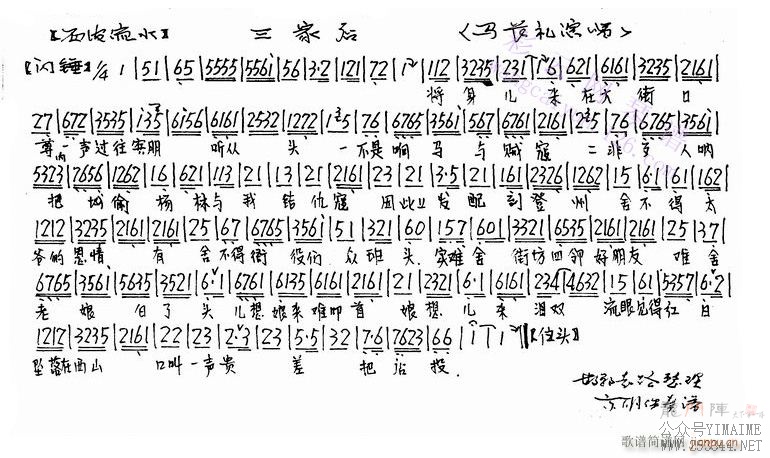 【西皮流水】 三家店 〈马长礼演唱〉
【闪锤】 1/4 1 | 51 | 65 | 5555 | 5561 | 56 | 3·2 | 121 | 72 | 1 | 112 | 3235 | 231 | 16 | 621 | 6161 | 3235 | 2161 |
将身儿来在大街口
27 | 672 | 3535 | 135 | 6156 | 6161 | 2532 | 1272 | 1 5 | 76 | 6765 | 3561 | 567 | 6761 | 2161 | 2 5 | 76 | 6765 | 3561 |
尊一声过往宾朋听从头一不是响马与贼寇二非是人呐
5323 | 7656 | 1262 | 16 | 621 | 113 | 21 | 13 | 21 | 2161 | 23 | 21 | 3·5 | 21 | 161 | 2326 | 1262 | 15 | 61 | 61 | 162 |
把城偷杨林与我结仇寇因此上发配到登州舍不得太
1212 | 3235 | 2161 | 2161 | 25 | 67 | 6765 | 3561 | 51 | 321 | 60 | 157 | 601 | 3321 | 6535 | 2161 | 2161 | 25 | 37 |
爷的恩情有舍不得衙役们众班头实难舍街坊四邻好朋友难舍
6765 | 3561 | 5635 | 3521 | 6·1 | 6761 | 6135 | 6161 | 2161 | 21 | 2321 | 6·1 | 6161 | 234 | 4632 | 15 | 61 | 5357 | 6·2
老娘白了头儿想娘来难叩首娘想儿来泪双流眼见得红日
1217 | 3235 | 2161 | 22 | 23 | 2·3 | 23 | 5·5 | 32 | 7·6 | 7623 | 66 | 1 | 1 ‖【住头】
坠落在西山口叫一声贵差把店投.
龙門陣
歌谱简谱网 jianpu.cn
公众号YIMAIME
www.293844.NET